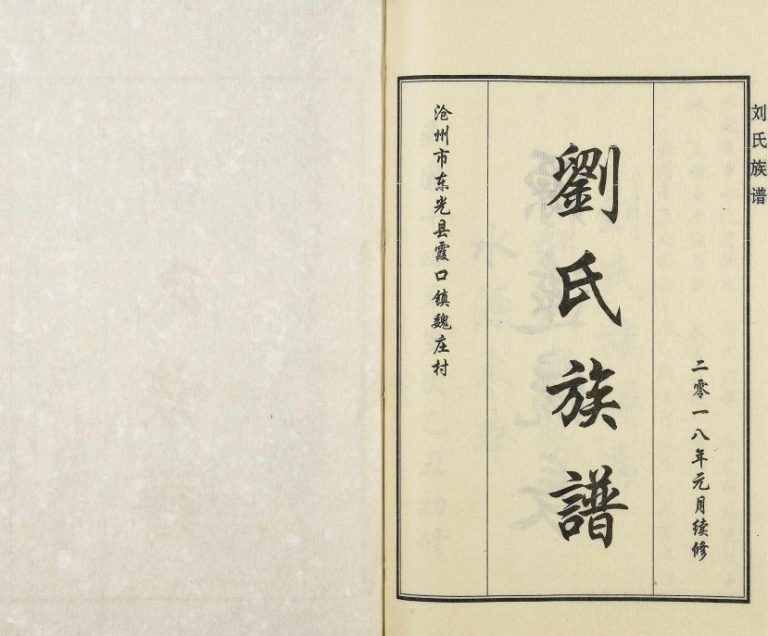 刘氏族谱
二零一八年元月续修
劉氏族譜
沧州市东光县霞口镇魏庄村